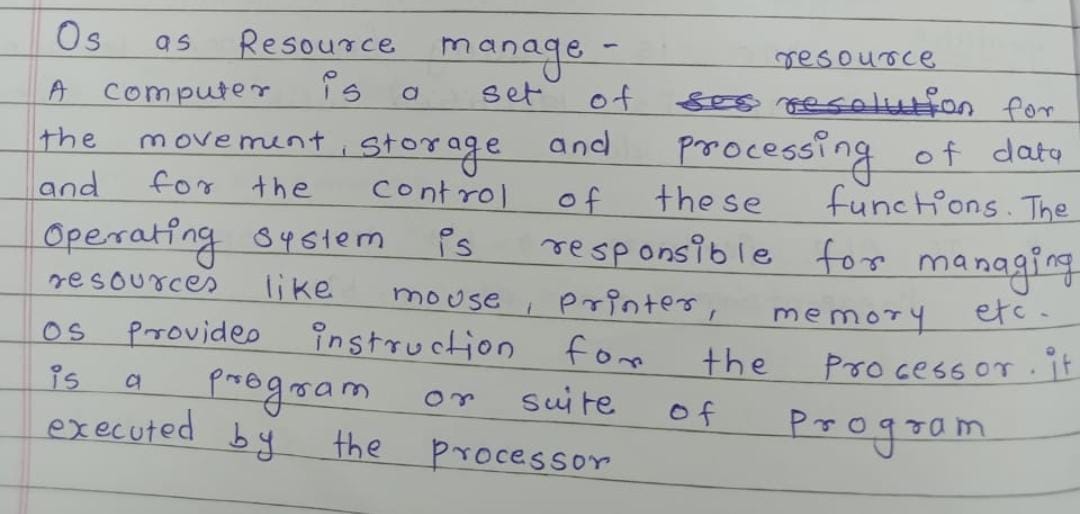 Os as Resource manage -
A computer is a set of resource for
the movement, storage and processing of data
and for the control of these functions. The
operating system is responsible for managing
resources like mouse, printer, memory etc.
OS provides instruction for the processor. it
is a program or suite of program
executed by the processor